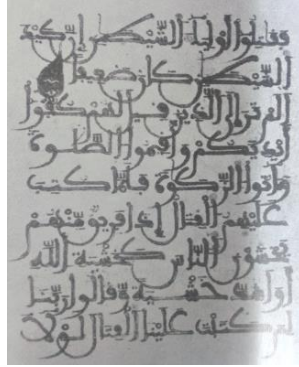 فقتلوا أولياء الشيطن إن كيد
الشيطن كان ضعيفا
ألم تر إلى الذين قيل لهم كفوا
أيديكم وأقيموا الصلوة
وءاتوا الزكوة فلما كتب
عليهم القتال إذا فريق منهم
يخشون الناس كخشية الله
أو أشد خشية وقالوا ربنا
لم كتبت علينا القتال لولا